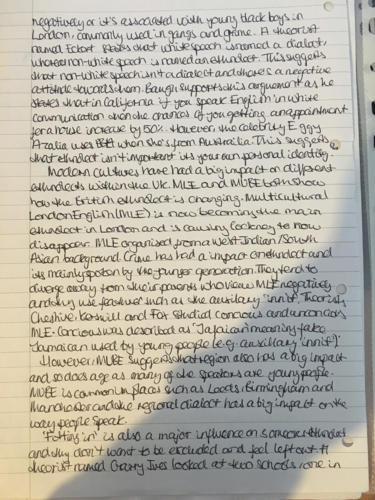 negatively or it's associated with young black boys in
London, commonly used in gangs and grime. A theorist
named Eckert states that white speech is named a dialect,
whereas non-white speech is named an ethnolect. This suggests
that non-white speech isn't a dialect and there is a negative
attitude towards them. Baugh supports this arguement as he
states that in California if you speak English in white
communication then the chances of you getting an appointment
for a house increase by 50%. However the celebrity Eggy
Azalia uses when she's from Australia. This suggests
that ethnolect isn't important its your own personal identity.
Modern cultures have had a big impact on different
ethnolects within the UK. MLE and MUBE both show
how the British ethnolect is changing. Multicultural
London English (MLE) is now becoming the main
ethnolect in London and is causing Cockney to now
disappear. MLE organised from a West Indian/South
Asian background. Crime has had a impact on ethnolect and
its mainly spoken by the younger generation. They tend to
diverge away from their parents who view MLE negatively
and they use features such as the auxillary 'innit'. Theorists
Cheshire, Kerswill and Fox studied
MLE. was described as 'Jafaican' meaning fake
Jamaican used by young people (e.g. auxillary 'innit')
However, MUBE suggests that region also has a big impact
and so does age as many of the speakers are young people.
MUBE is common in places such as Leeds, Birmingham and
Manchester and the regional dialect has a big impact on the
way people speak.
'Fitting in' is also a major influence on someones ethnolect
and they don't want to be excluded and feel left out. A
theorist named Garry Ives looked at two schools, one in